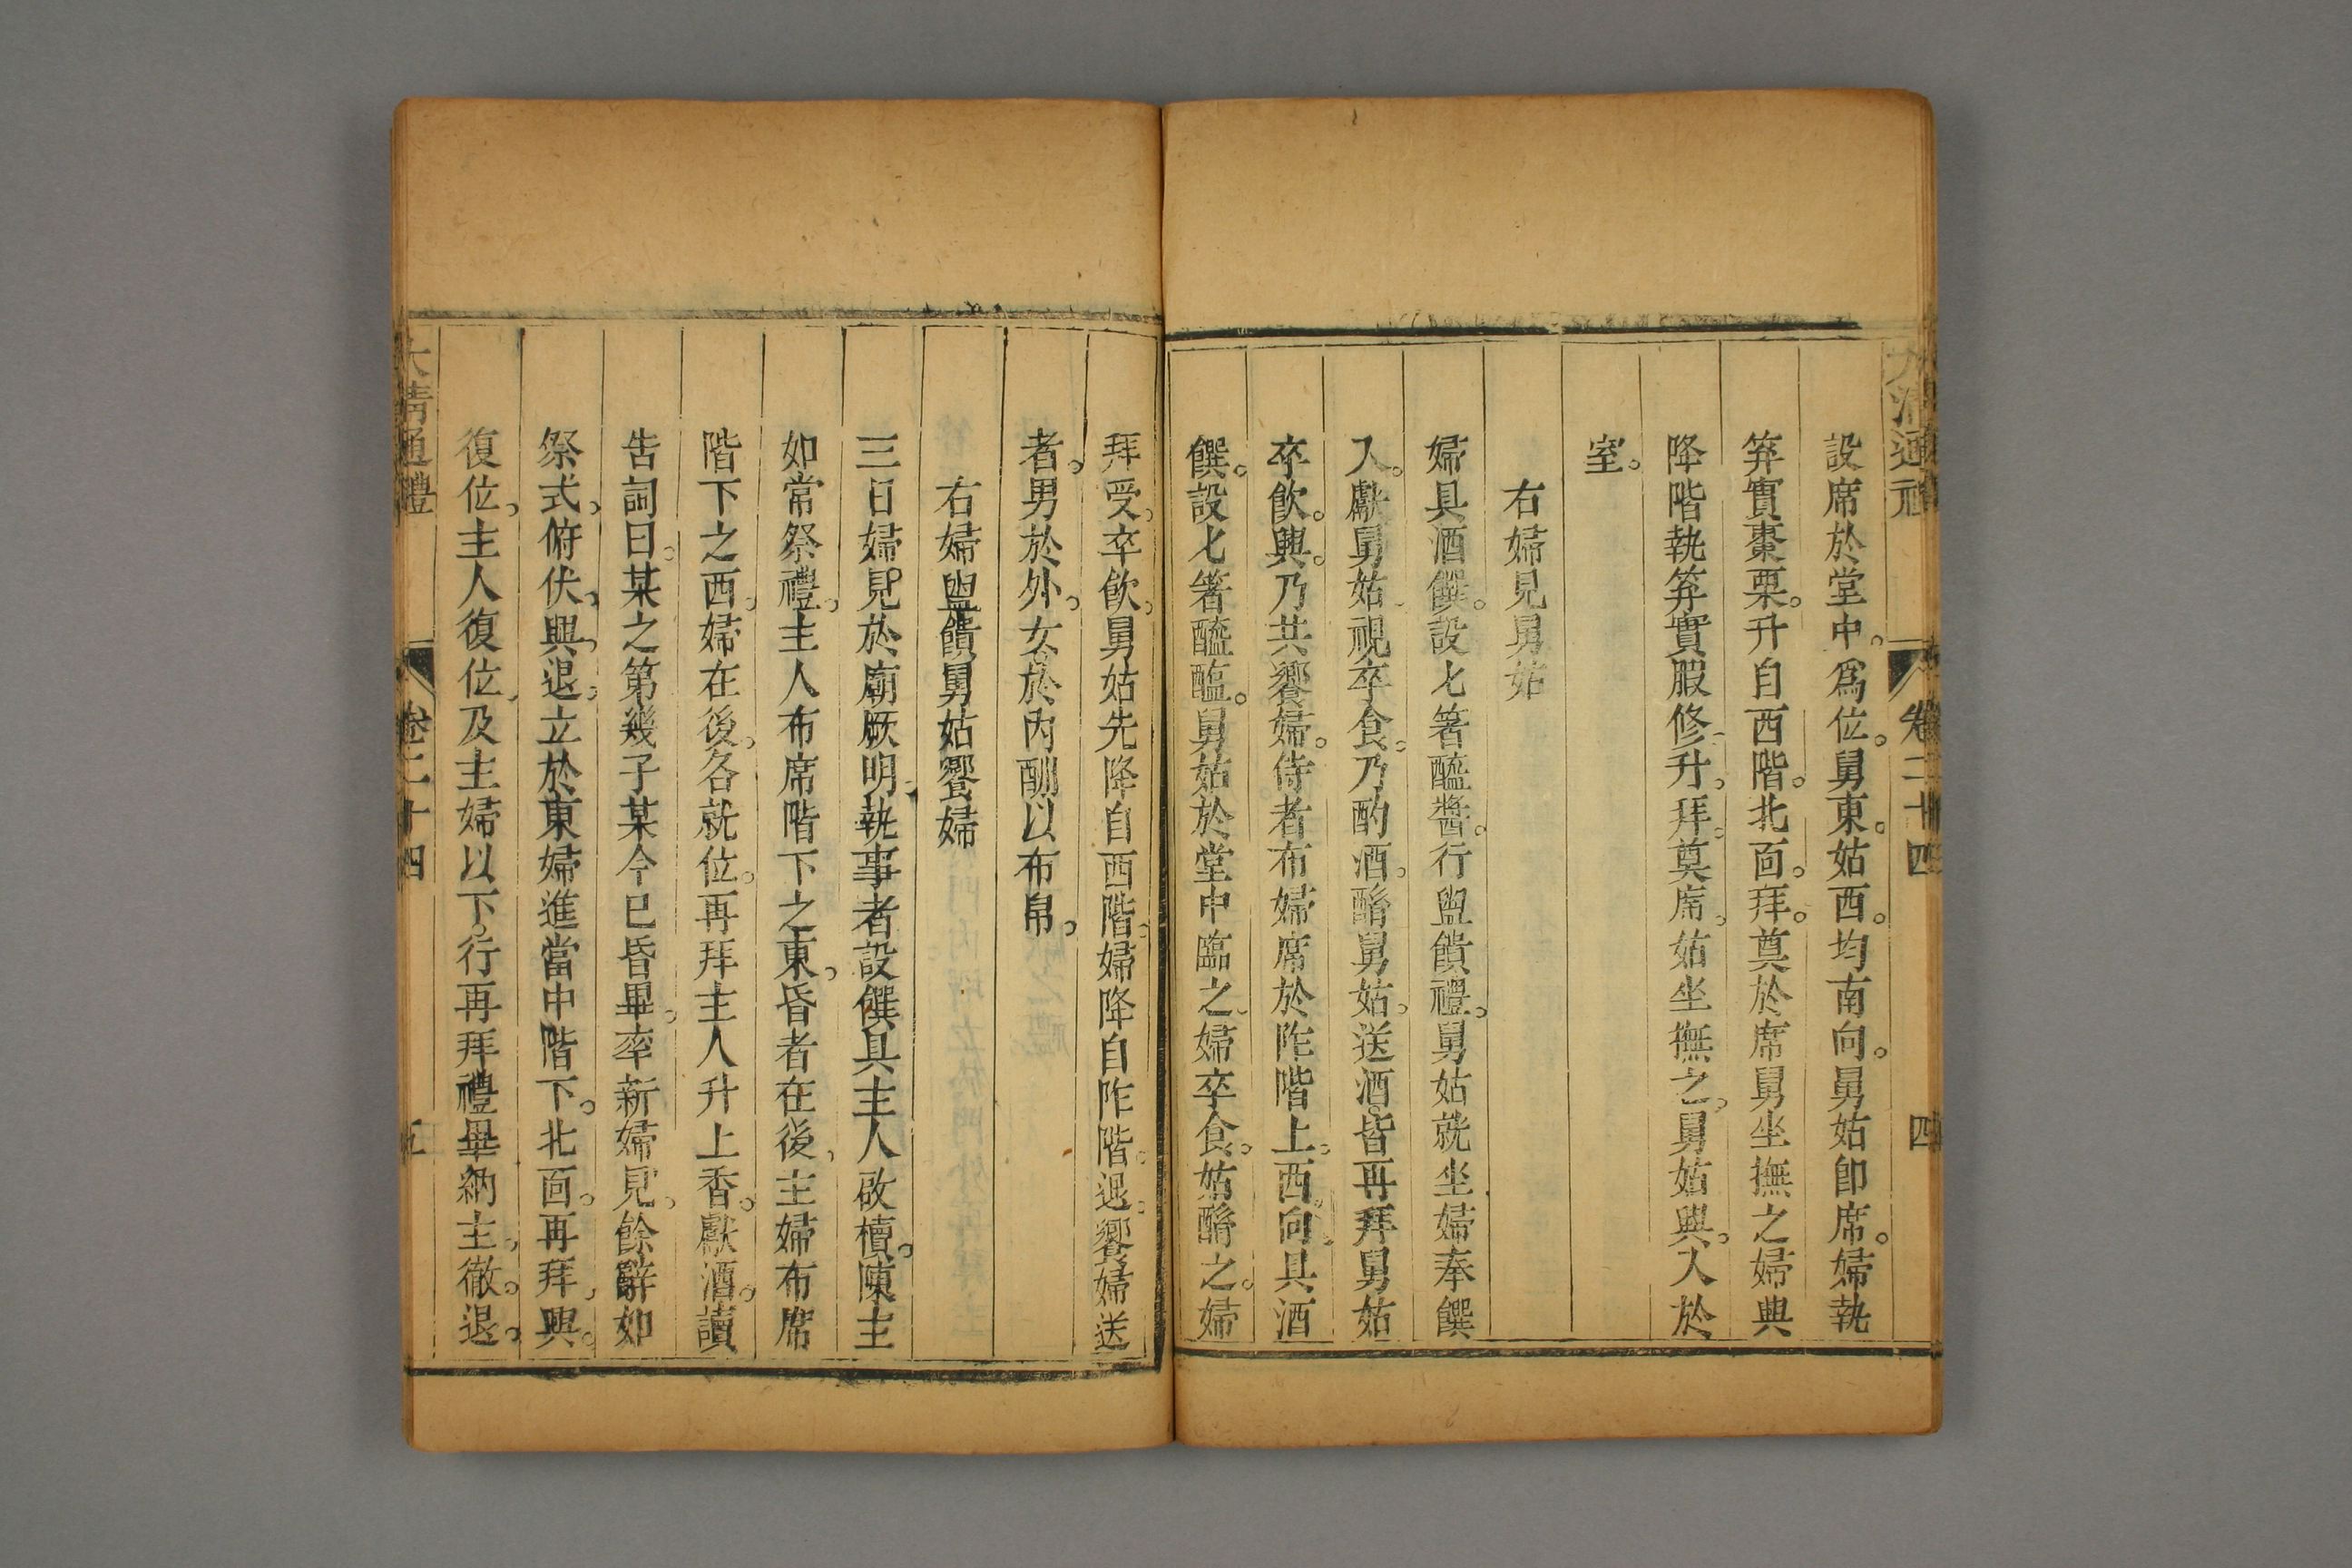 大清通禮 卷二十四 四
設席於堂中。爲位。舅東。姑西。均南向。舅姑卽席。婦執
笲實棗栗。升自西階。北面。拜。奠於席舅坐撫之婦興
降階執笲實腶修。升。拜。奠席。姑坐撫之。舅姑興。入於
室。
右婦見舅姑
婦具酒饌。設匕箸醯醬。行盥饋禮。舅姑就坐婦奉饌
入。獻舅姑。視卒食。乃酌酒。酳舅姑。送酒。皆再拜舅姑
卒飲。興。乃共饗婦。侍者布婦席於阼階上。西向。具酒
饌。設匕箸醯醢。舅姑於堂中臨之。婦卒食。姑酳之。婦
拜受。卒飲。舅姑先降自西階。婦降自阼階。退。饗婦送
者。男於外。女於內酬以布帛。
右婦盥饋舅姑饗婦
三日婦見於廟厥明。執事者設饌具主人啟櫝。陳主
如常祭禮。主人布席階下之東。昏者在後。主婦布席
階下之西。婦在後。各就位。再拜主人升上香。獻酒。讀
告詞曰。某之第幾子某今巳昏畢。率新婦見。餘辭如
祭式。俯伏。興。退。立於東婦進當中階下。北面。再拜。興。
復位。主人復位。及主婦以下。行再拜禮畢納主。徹。退。
大清通禮 卷二十四 五